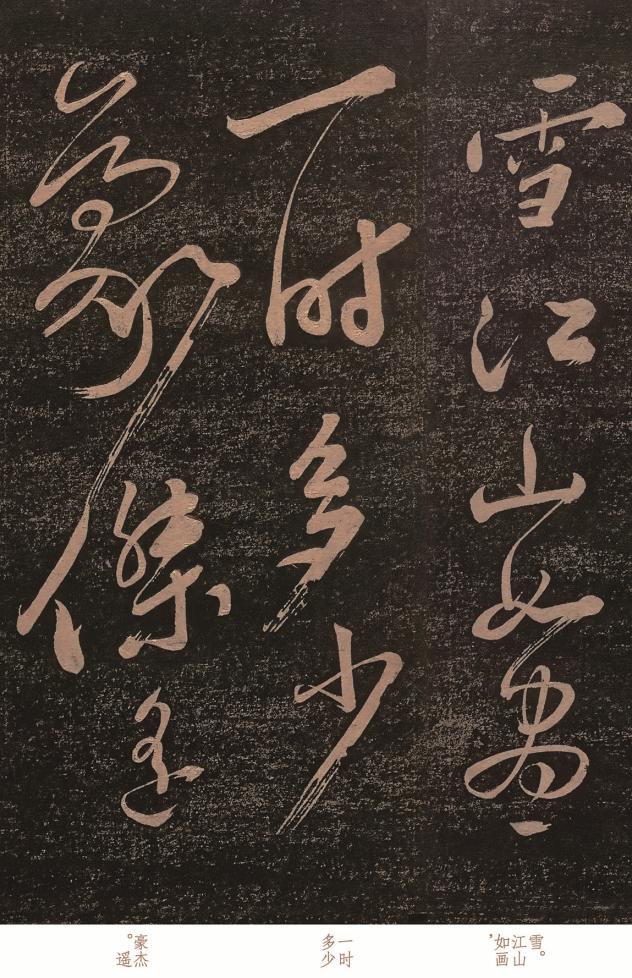 雪江山如畫
一时多少
豪傑遥
雪。
江山
如画，
一时
多少
豪杰
。遥